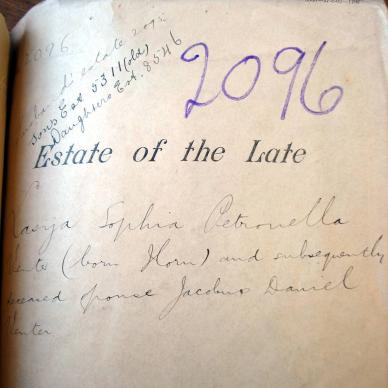 2096
husband's estate 2095
Sons Est 5311 (old)
Daughters Est. 8546
2096
Estate of the Late
Sophia Petronella
(born Horn) and subsequently
deceased spouse Jacobus Daniel